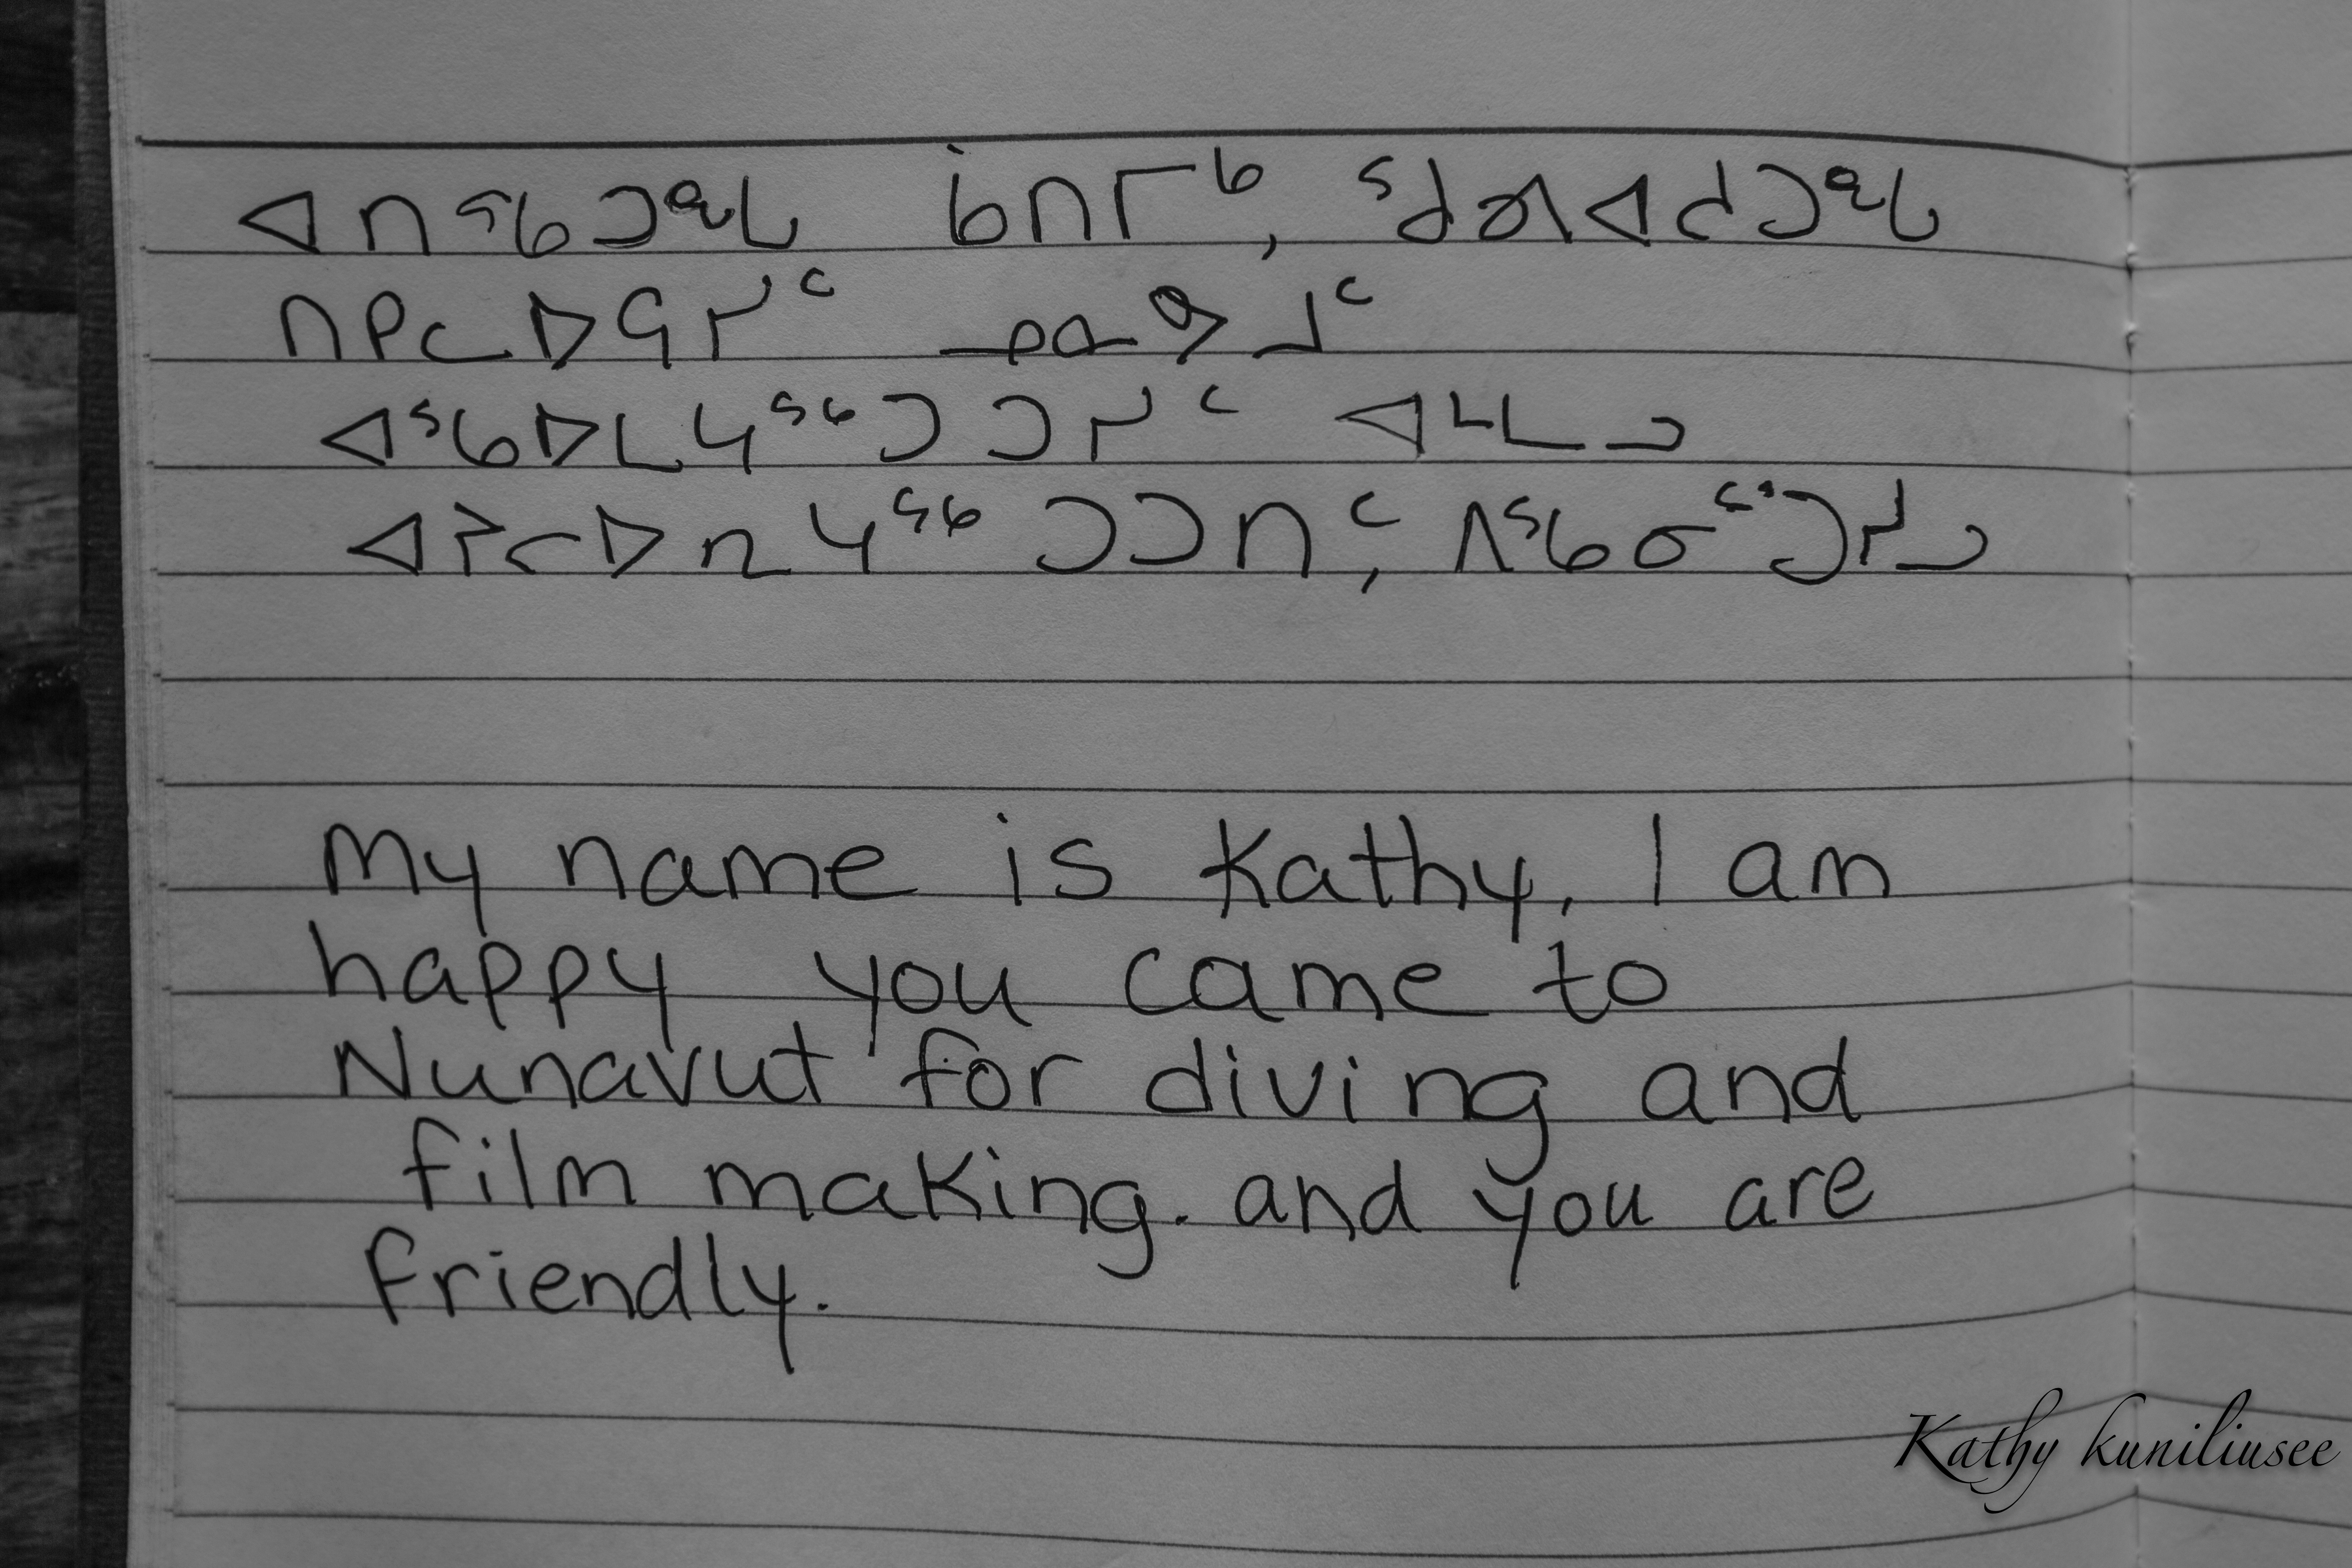 ᐊᑎᖃᑐᖓ ᑳᑎᒥᒃ, ᖁᕕᐊᓱᑐᖓ
ᑎᑭᓚᐅᕋᓯᑦ ᓄᓇᕗᒧᑦ
ᐊᖃᐅᒪᔭᖅᑐᑐᓯᑦ ᐊᒻᒪᓗ
ᐊᔨᓕᐅᕆᔭᖅᑐᑐᑎᑦ, ᐱᖃᓂᑦᑐᓯᓗ
My name is Kathy, I am
happy you came to
Nunavut for diving and
film making. and you are
friendly.
Kathy kuniliusee